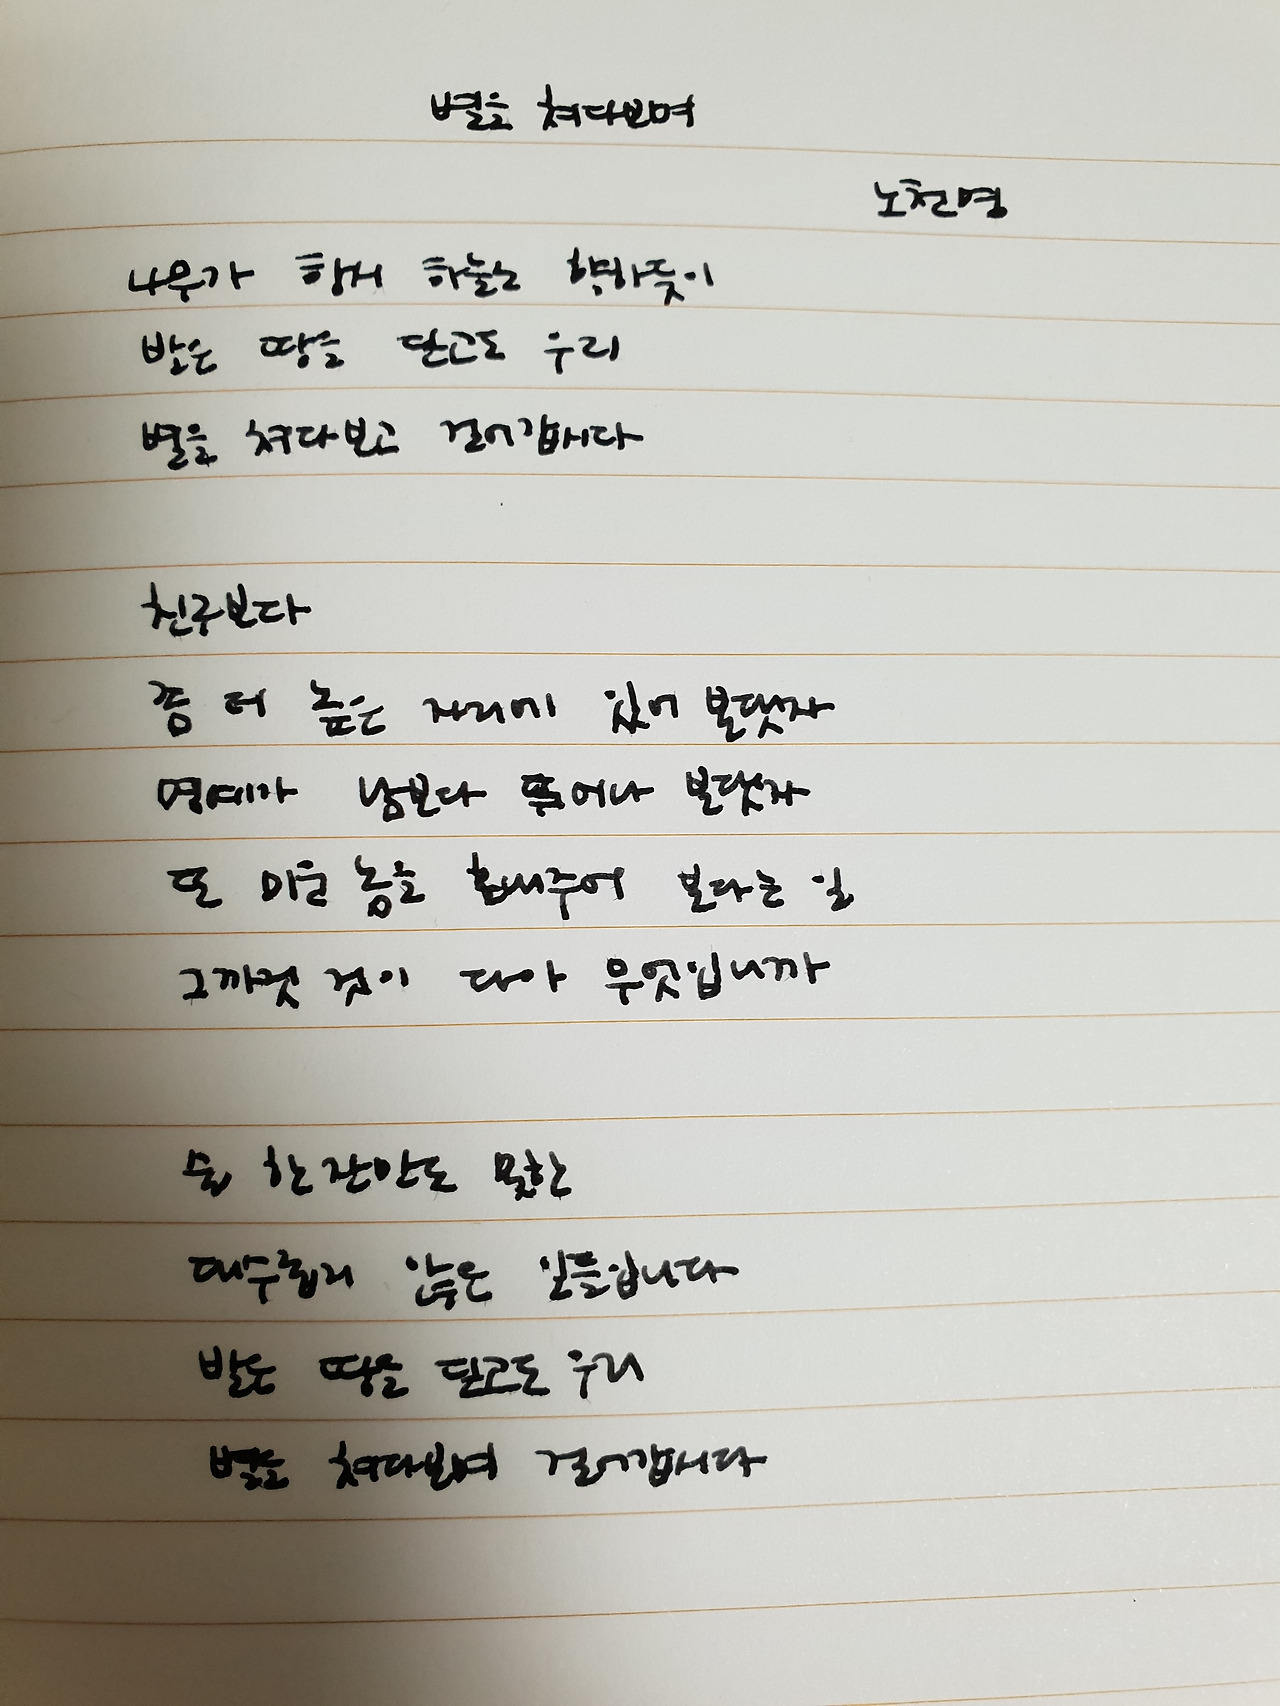 별을 쳐다보며
노천명
나무가 항시 하늘로 향하듯이
발은 땅을 딛고도 우리
별을 쳐다보고 걸어갑시다
친구보다
좀 더 높은 자리에 있어 본댓자
명예가 남보다 뛰어나 본댓자
또 미운 놈을 혼내주어 본다는 일
그까짓 것이 다아 무엇입니까
술 한잔만도 못한
대수롭지 않은 일들입니다
발은 땅을 딛고도 우리
별을 쳐다보며 걸어갑시다